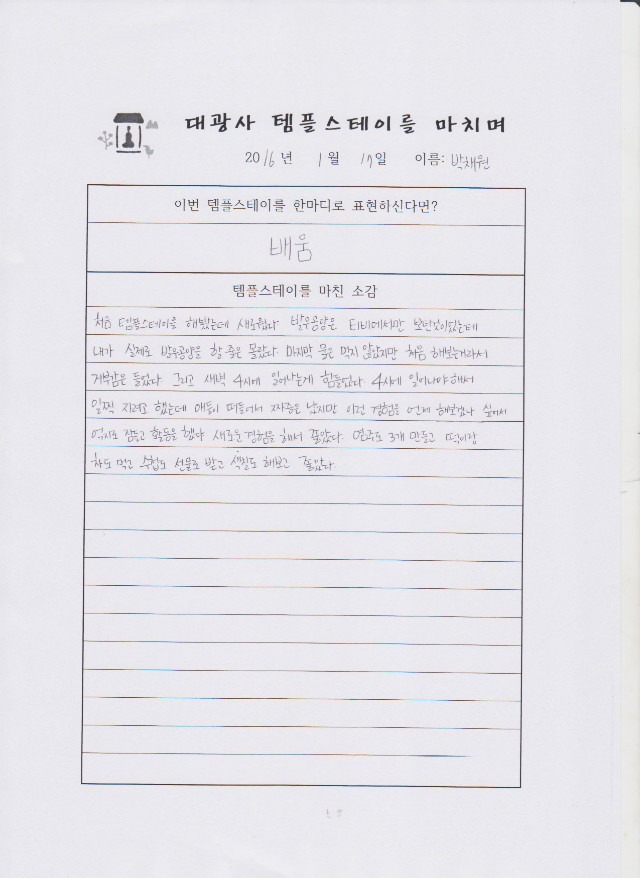 대광사 템플스테이를 마치며
2016년 1월 17일 이름: 박채원
이번 템플스테이를 한마디로 표현하신다면?
배움
템플스테이를 마친 소감
처음 템플스테이를 해봤는데 새로웠다. 발우공양은 티비에서만 보던것이었는데
내가 실제로 발우공양을 할 줄은 몰랐다. 마지막 물은 먹지 않았지만 처음 해보는거라서
거부감은 들었다. 그리고 새벽 4시에 일어나는게 힘들었다. 4시에 일어나야 해서
일찍 자려고 했는데 애들이 떠들어서 짜증은 났지만 이런 경험을 언제 해보겠나 싶어서
억지로 잠들고 활동을 했다. 새로운 경험을 해서 좋았다. 연꽃도 3개 만들고 떡이랑
차도 먹고 수첩도 선물로 받고 색칠도 해보고 좋았다.